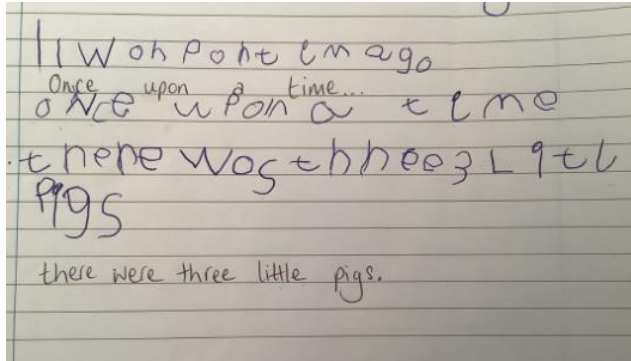 11 W on Pont im ago
Once upon a time...
oNce uPon a time
there wos thhee3 L9tl
Pigs
there were three little pigs.